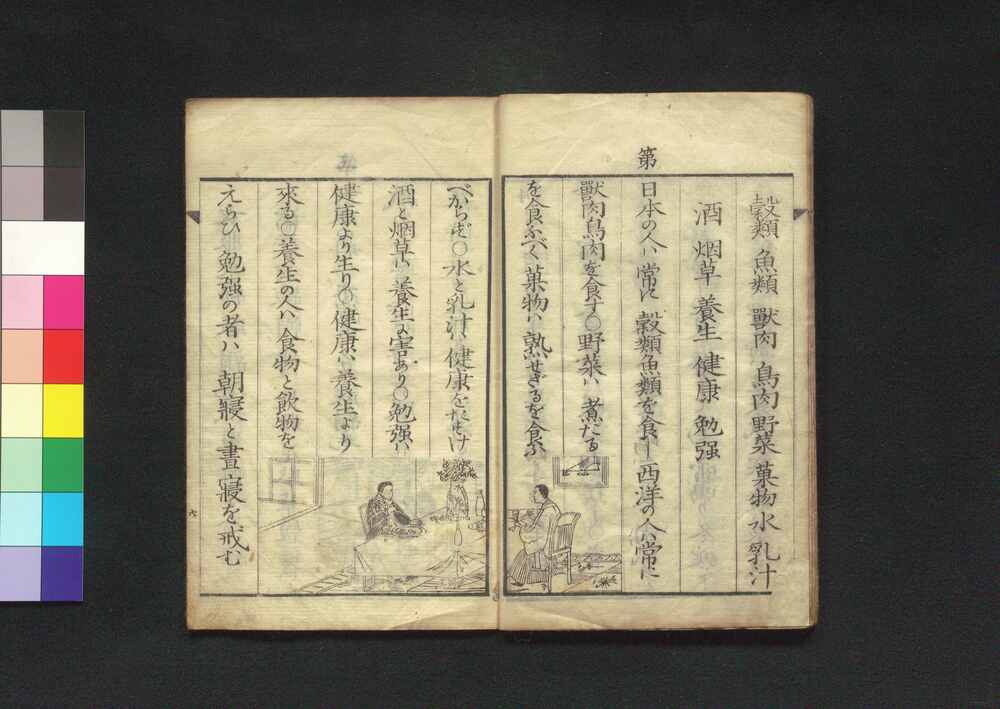 穀類 魚類 獸肉 鳥肉 野菜 菓物 水 乳汁
酒 烟草 養生 健康 勉强
第
日本の人ハ 常に 穀類魚類を食し 西洋の人ハ常に
獸肉鳥肉を食す○野菜ハ 煮たる
を食ふべく 菓物ハ 熟せざるを食ふ
べからず○水と乳汁ハ 健康をたすけ
酒と烟草ハ 養生に害あり○勉强ハ
健康より生り○健康ハ 養生より
來る○養生の人ハ 食物と飲物を
えらひ 勉强の者ハ 朝寢と晝寢を戒む
六